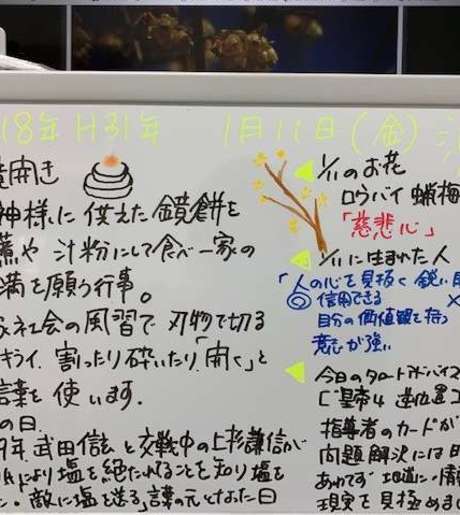 18年 H31年 1月11日(金)
鏡開き
神様に供えた鏡餅を
や汁粉にして食べ一家の
満を願う行事。
社会の風習で刃物で切る
キライ、割ったり砕いたり「開く」と
言葉を使います。
の日
9年、武田信玄と交戦中の上杉謙信が
により塩を絶たれてることを知り塩を
た。敵に塩を送る」諺の元となった日
1/11のお花
ロウバイ 蝋梅
「慈悲心」
1/11に生まれた人
「人の心を見抜く鋭い
◎信用できる ×
自分の価値観を持つ
意志が強い
今日のタロットアドバイス
「皇帝4 逆位置
指導者のカードが
問題解決には
あわてず 地道に 情
現実を見極めま